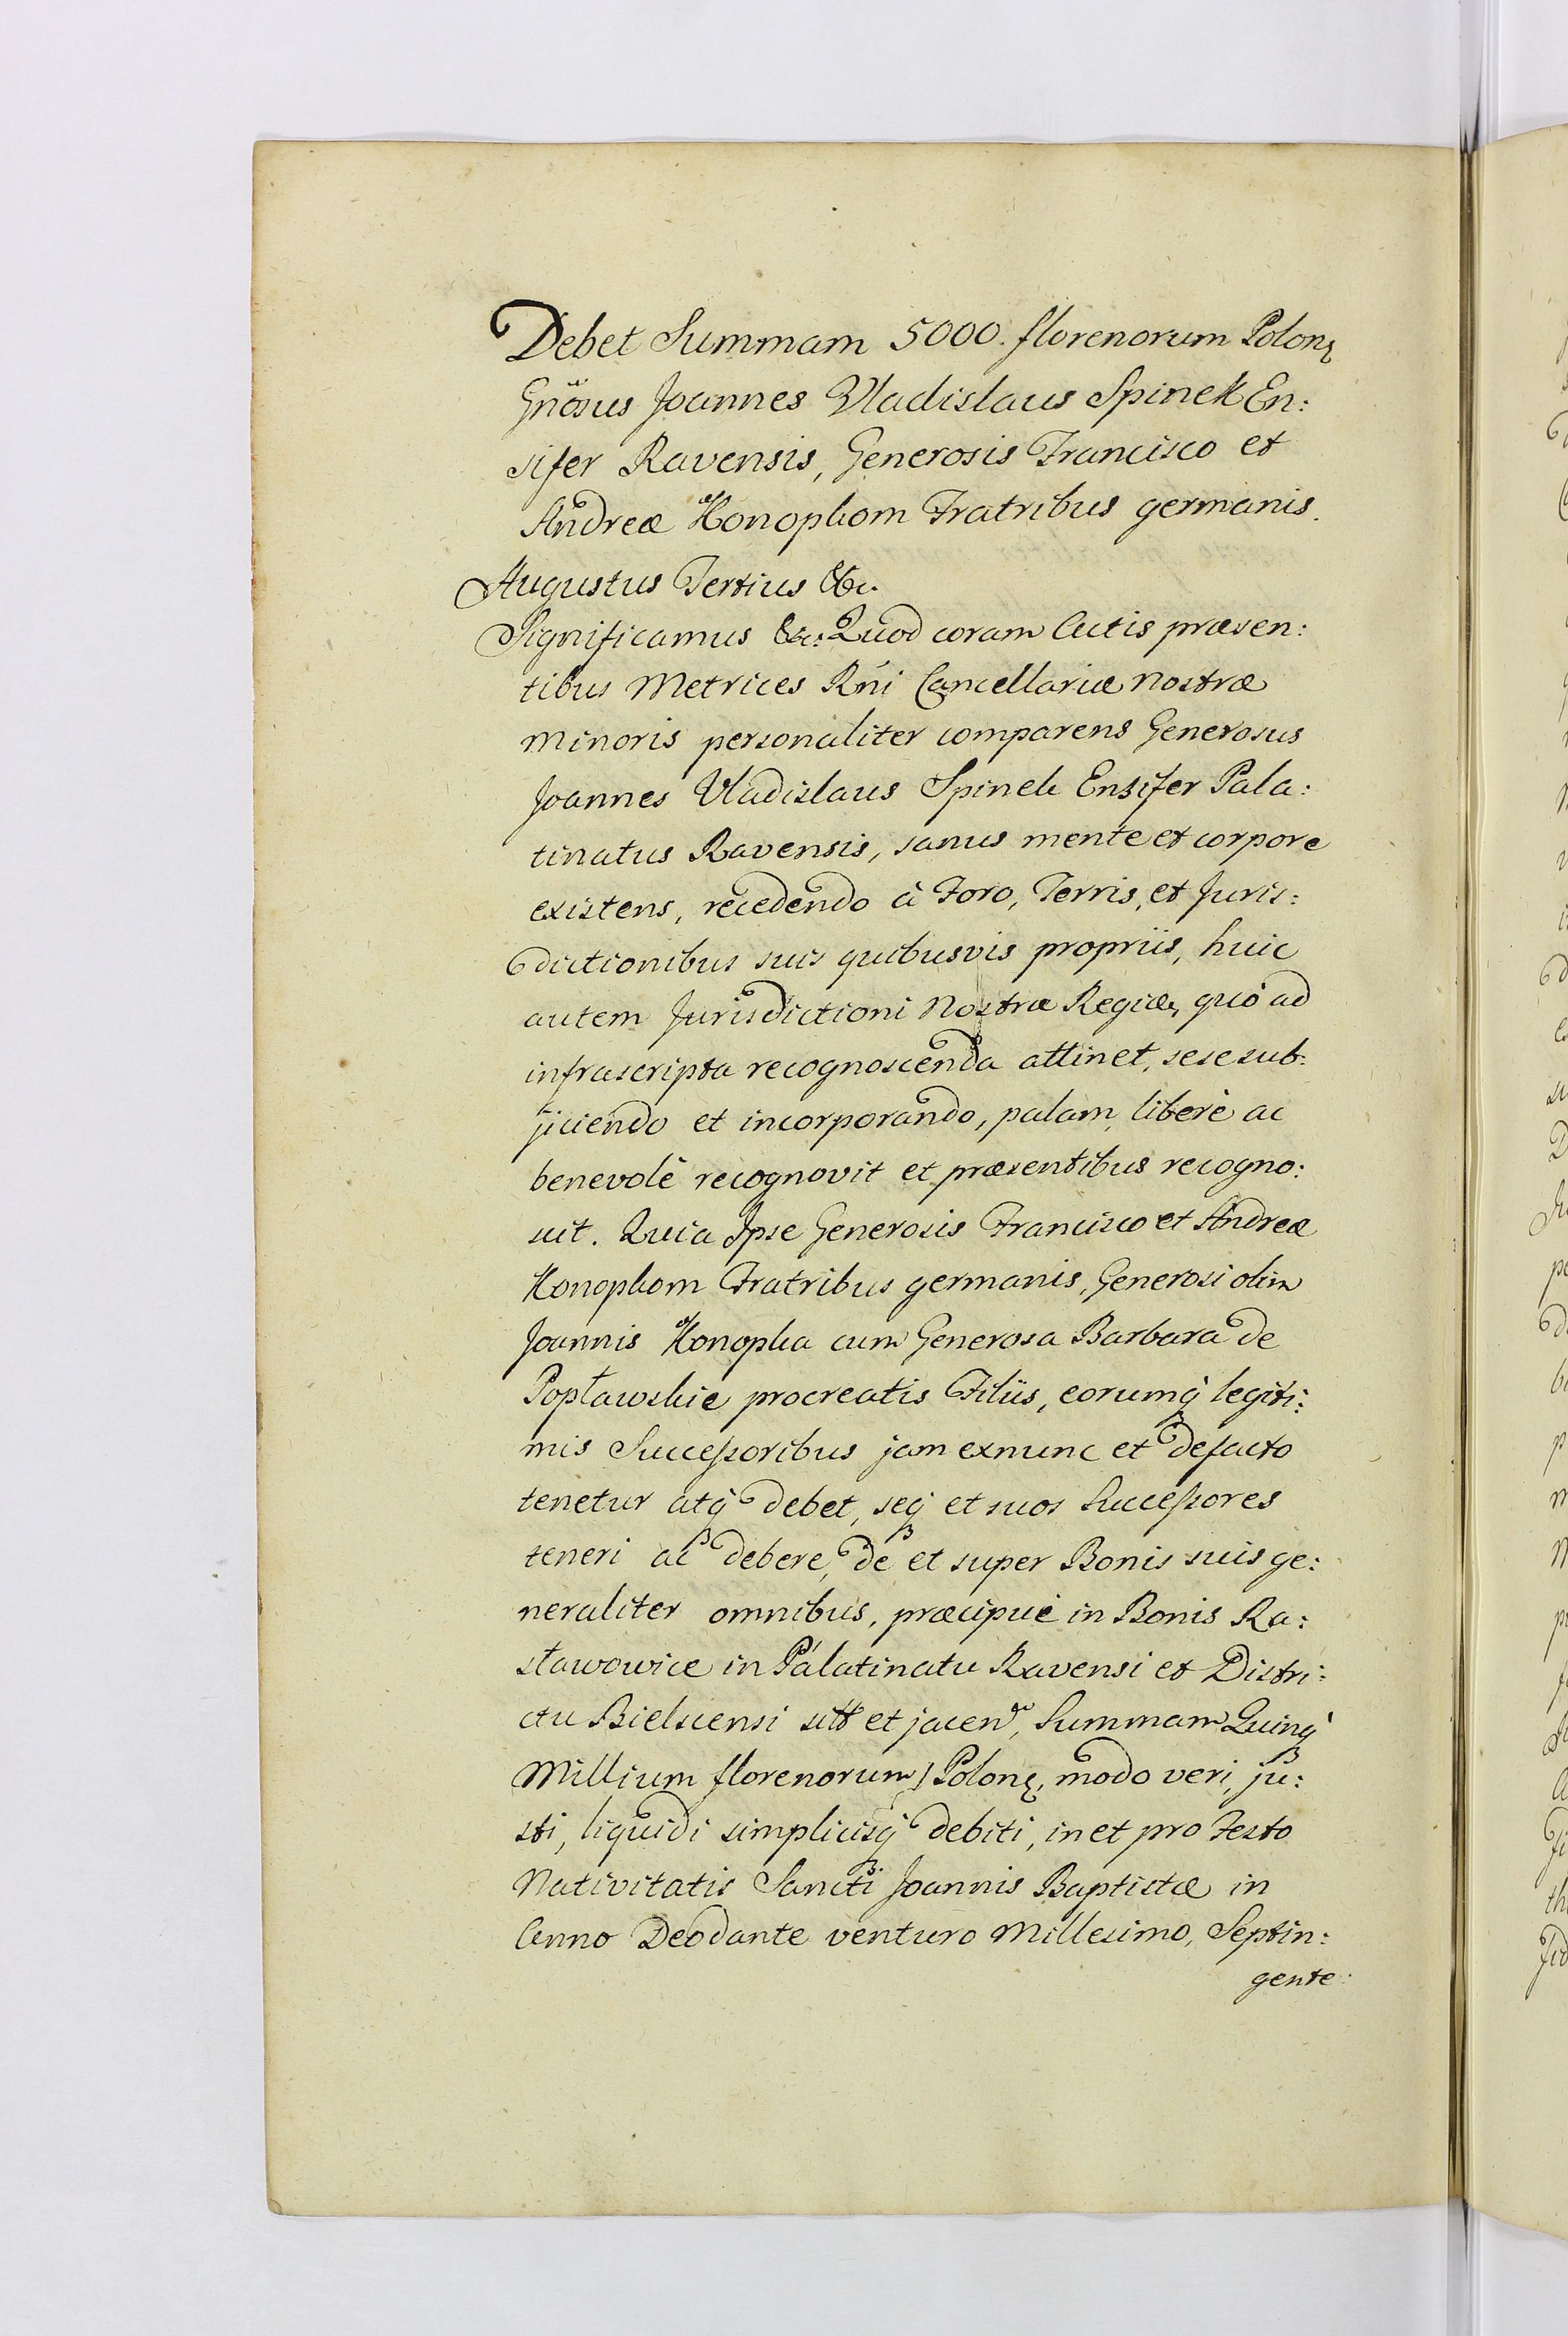 Debet Summam 5000. florenorum Polon
Gnosus Joannes Vladislaus Spinek En:
sifer Ravensis, Generosis Francisco et
Andreæ Konopkom Fratribus germanis.
Augustus Tertius &c.
Significamus &c: Quod coram Actis præsen:
tibus Metrices Rńi Cancellariæ Nostræ
Minoris personaliter comparens Generosus
Joannes Vladislaus Spinek Ensifer Pala:
tinatus Ravensis, sanus mente et corpore
existens, recedendo à Foro, Terris, et Juris:
dictionibus suis quibusvis propriis, huic
autem Jurisdictioni Nostræ Regiæ, quò ad
infrascripta recognoscenda attinet, sese sub:
jiciendo et incorporando, palam, liberè ac
benevolè recognovit et præsentibus recogno:
scit. Quia Ipse Generosis Francisco et Andreæ
Konopkom Fratribus germanis, Generosi olim
Joannis Konopka cum Generosa Barbara de
Popławskie procreatis Filiis, eorumq̀ legiti:
mis Successoribus jam exnunc et defacto
tenetur atq̀ debet, seq̀ et suos Successores
teneri ac debere, de et super Bonis suis ge:
neraliter omnibus, præcipuè in Bonis Ra:
sławowice in Palatinatu Ravensi et Distri:
ctu Bielscensi sitt et jacen, Summam Quinq̀
Millium florenorum) Polon, modo veri, ju:
sti, liquidi simplicisq̀ debiti, in et pro Festo
Nativitatis Sancti Joannis Baptistæ in
Anno Deodante venturo Millesimo, Septin:
gente